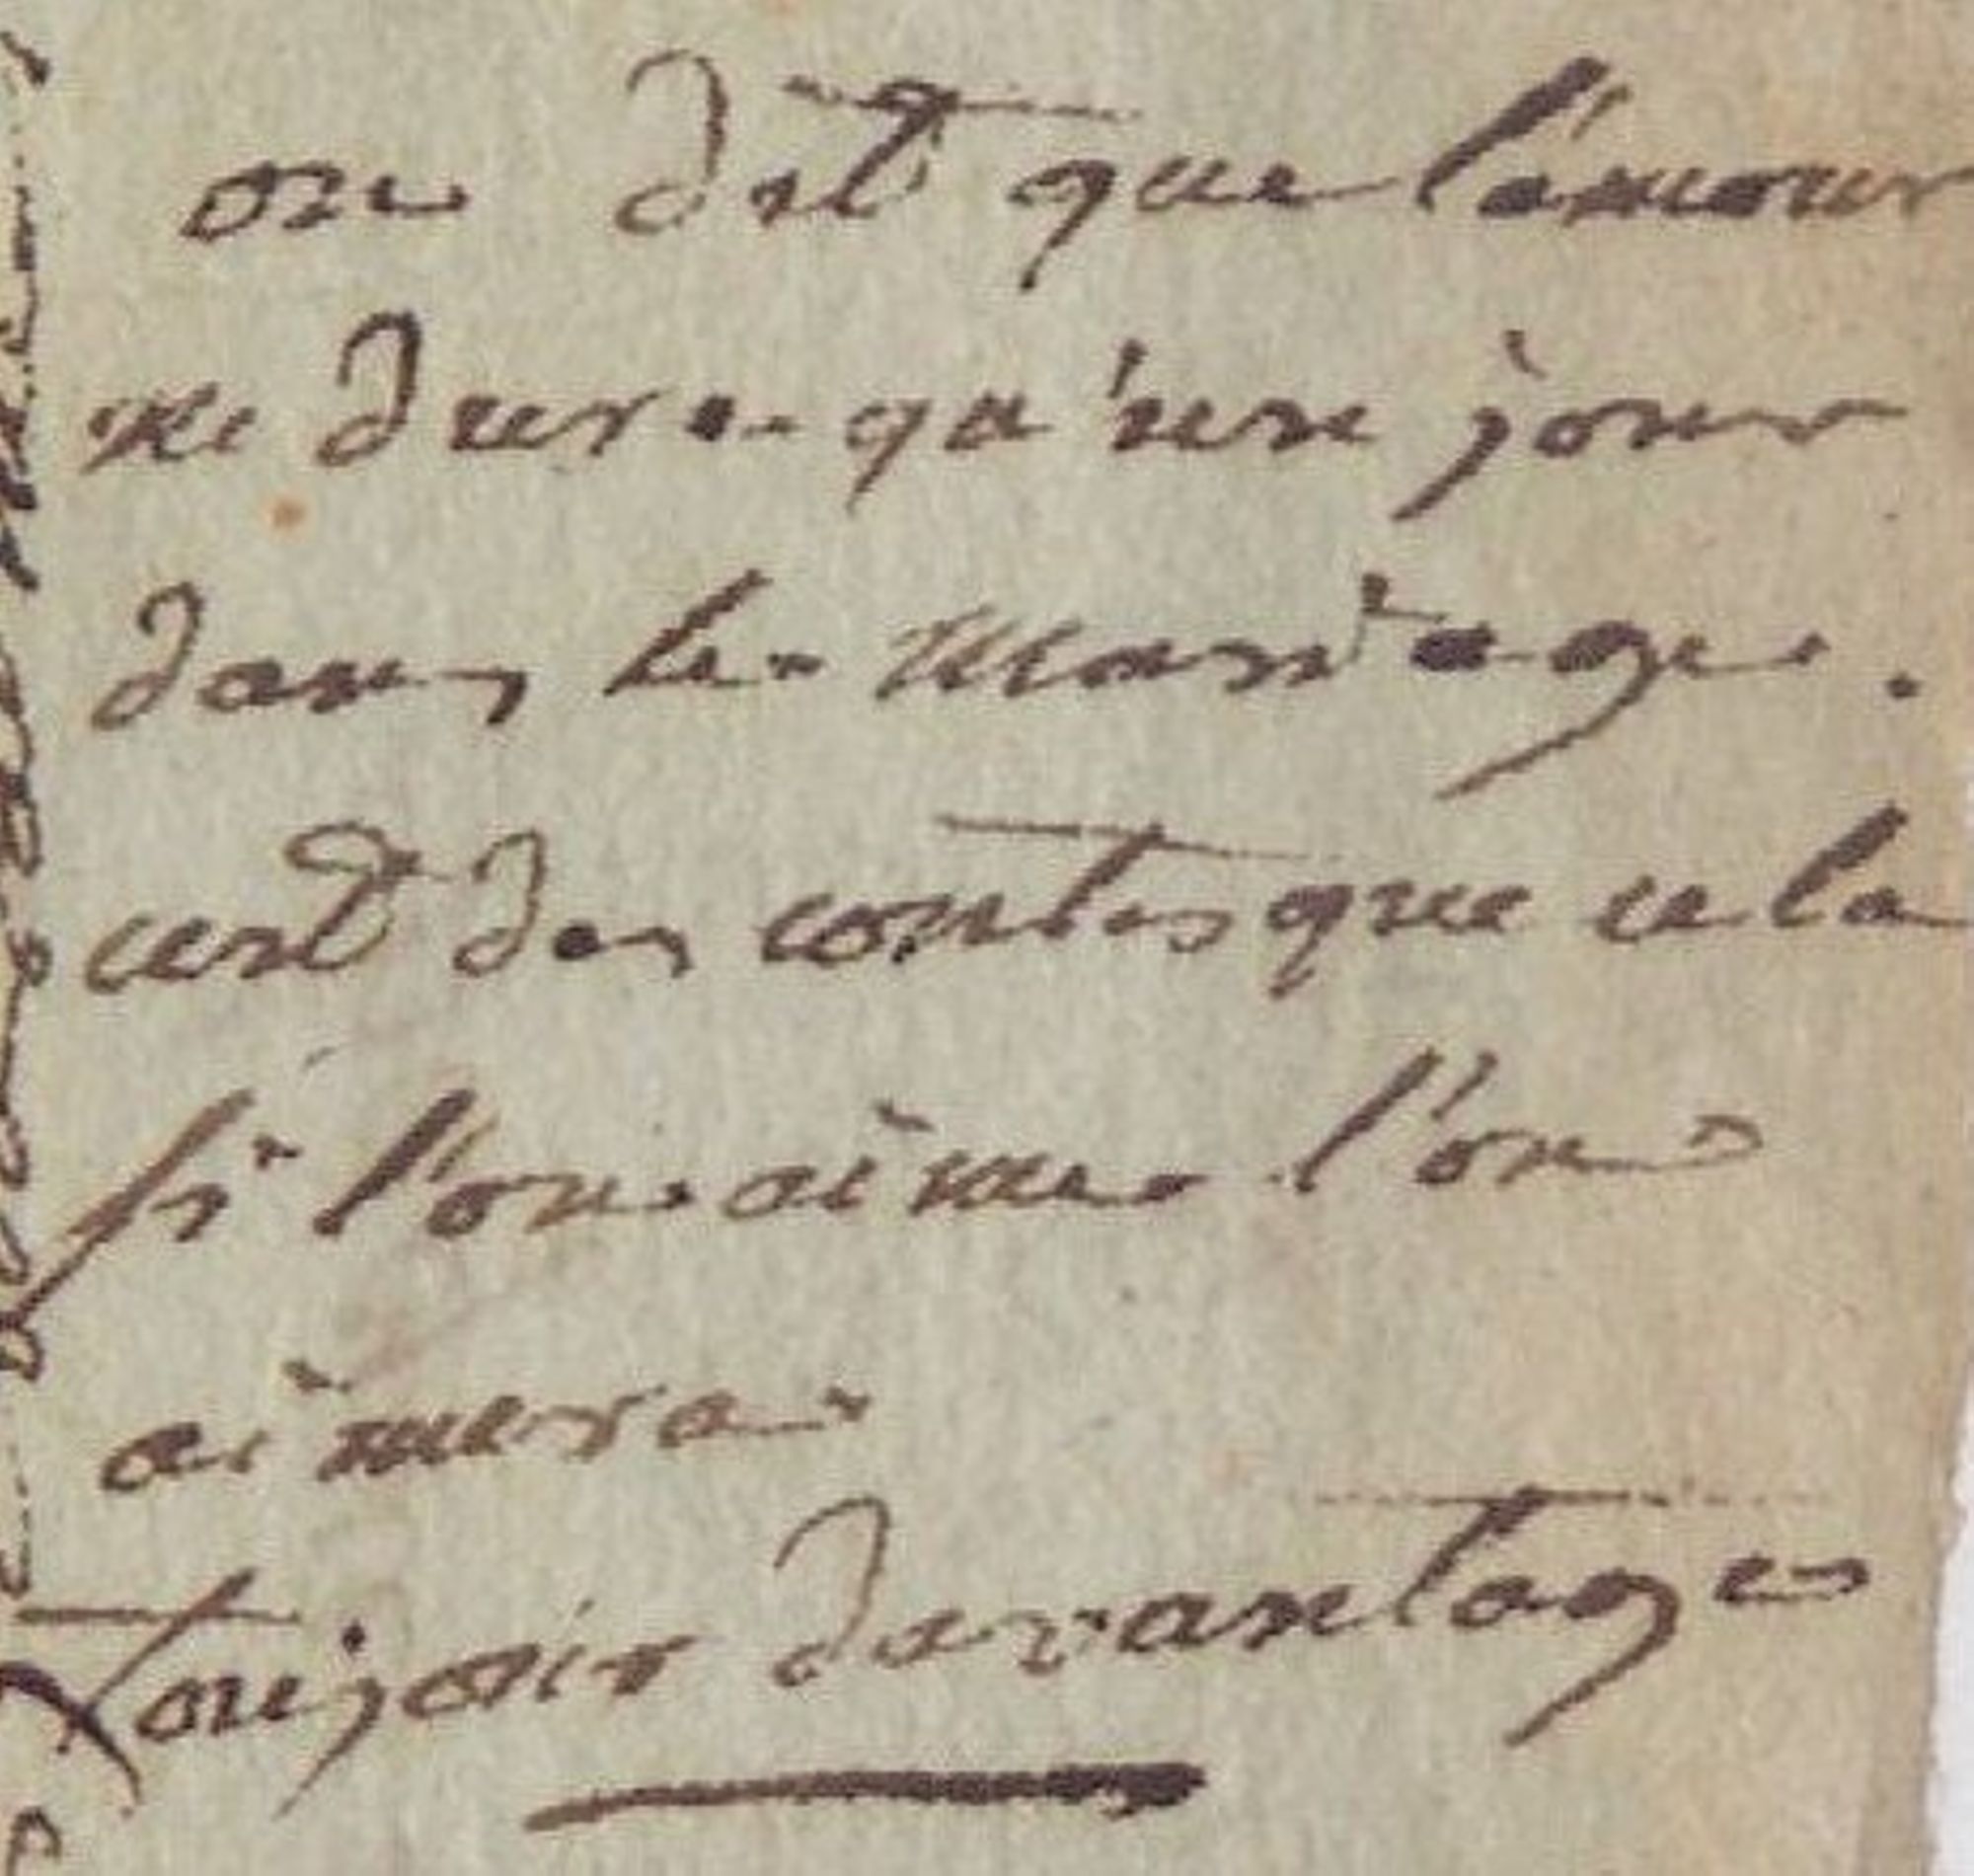 on dit que l'amour
ne dure qu'un jour
dans le mariage.
cest des contes que cela
si l'on aime l'on
aimera
toujour davantages